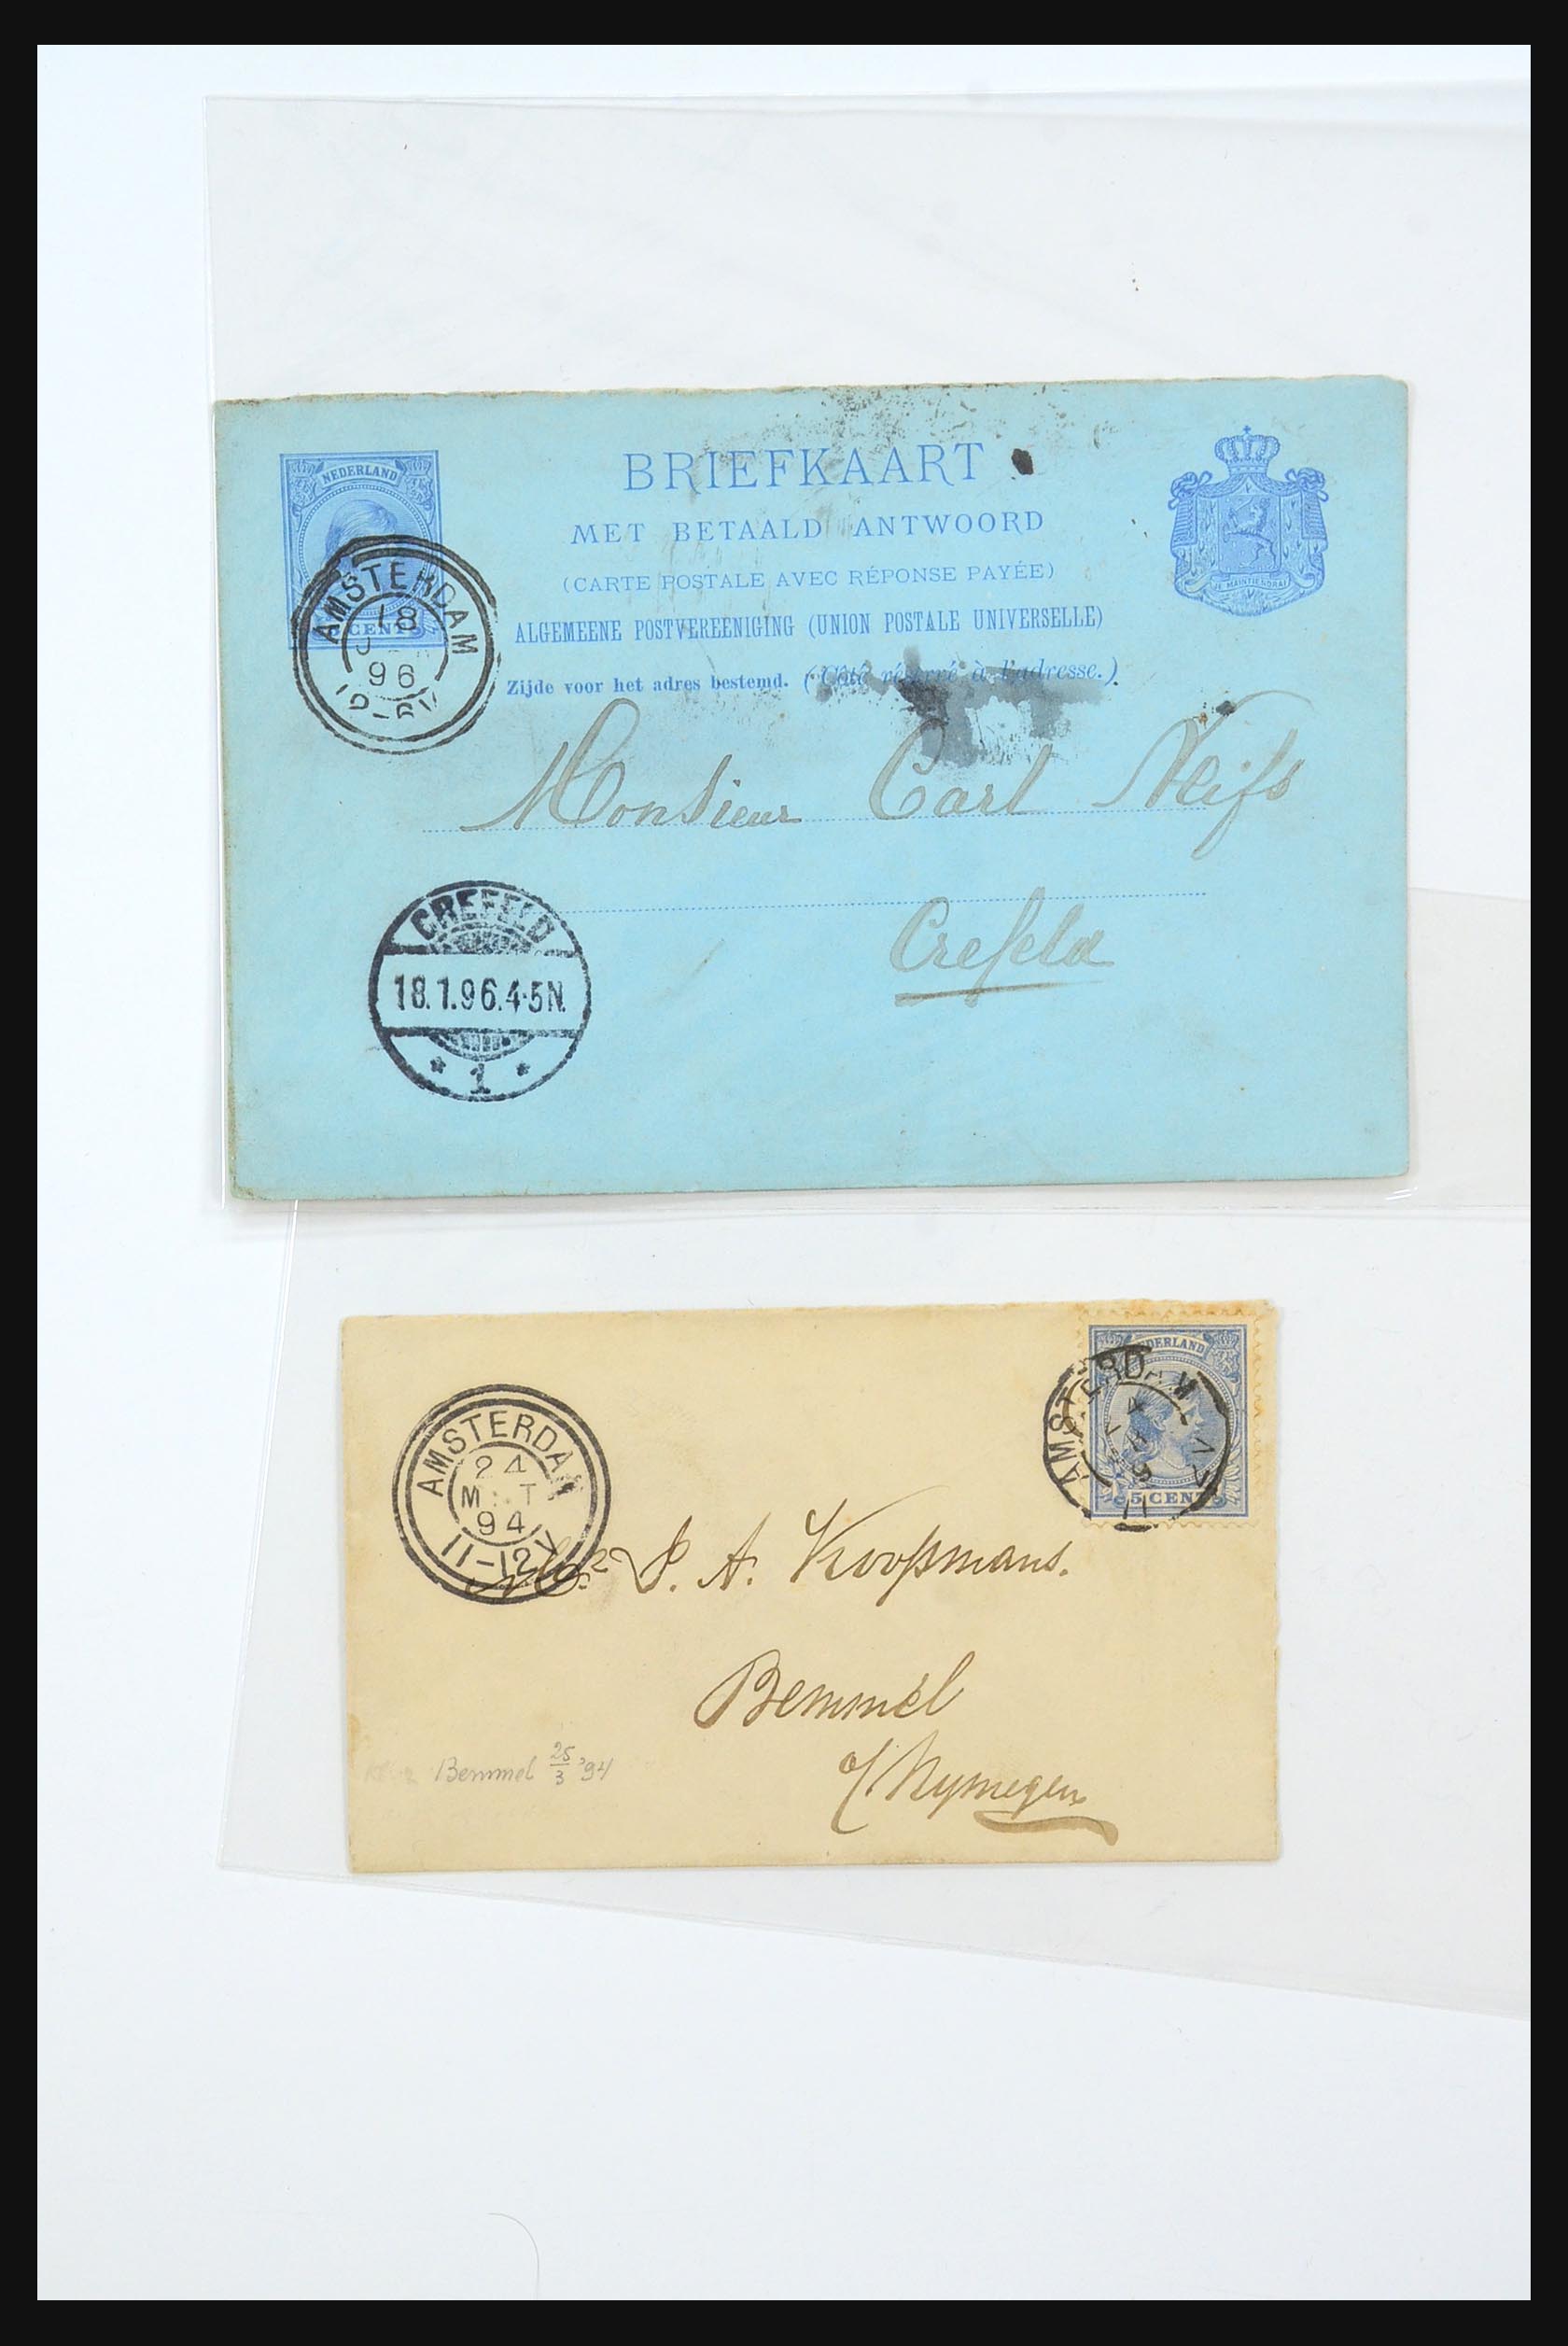 NEDERLAND
CENT
BRIEFKAART
MET BETAALD ANTWOORD
(CARTE POSTALE AVEC RÉPONSE PAYÉE)
ALGEMEENE POSTVEREENIGING (UNION POSTALE UNIVERSELLE)
Zijde voor het adres bestemd. (Côté réservé à l'adresse.)
JE MAINTIENDRAI
AMSTERDAM
18
96
Monsieur Carl Neifs
Crefeld
CREFELD
18.1.96.4-5N.
* 1 *
NEDERLAND
5 CENT
AMSTERDAM
AMSTERDAM
24
94
11-12V
P. A. Koopmans.
Bemmel
Nymegen
Bemmel 25/3 '94